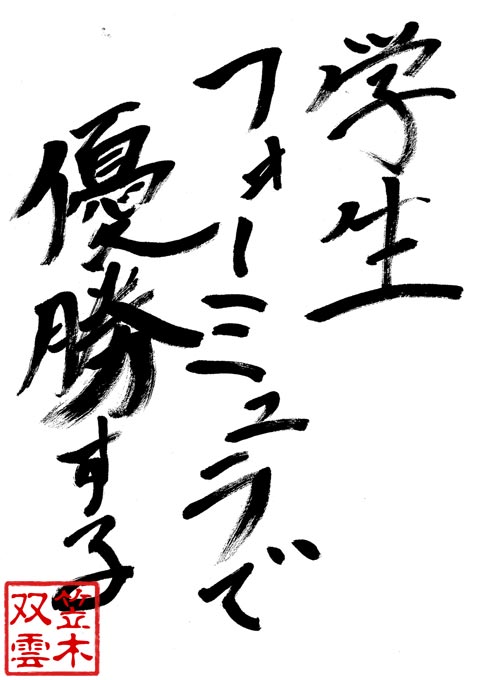 学生
フォーミュラで
優勝する
笠木
双雲